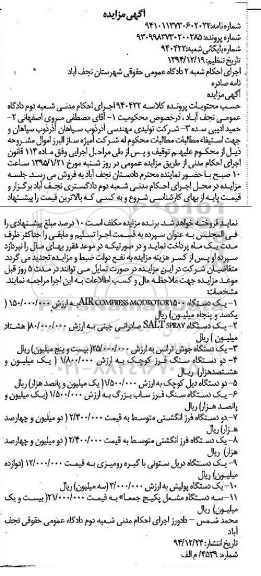 آگهی مزایده
شماره نامه: ۹۴۱۰۱۱۳۷۳۰۶۰۲۰۲۲
شماره پرونده: ۹۳۰۹۹۸۳۷۳۰۲۰۰۲۸۵
شماره بایگانی شعبه: ۹۴۰۴۲۲
تاریخ تنظیم: ۱۳۹۴/۱۲/۱۹
اجرای احکام شعبه ۲ دادگاه عمومی حقوقی شهرستان نجف آباد
نامه صادره
آگهی مزایده
حسب محتویات پرونده کلاسه ۹۴۰۴۲۲ اجرای احکام مدنی شعبه دوم دادگاه
عمومی نجف آباد، درخصوص محکومیت ۱- آقای مصطفی مروی اصفهانی ۲-
حمید ادیبی سده ۳- شرکت تولیدی مهندسی آذرذوب سپاهان آذرذوب سپاهان و
جهت استیفاء مطالبات مطالبات محکوم له شرکت آمیژه ساز البرز اموال مشروحه
ذیل از محکوم علیهم توقیف و پس از طی مراحل اجرای وفق ماده ۱۱۴ قانون
اجرای احکام مدنی از طریق مزایده عمومی در روز شنبه مورخ ۱۳۹۵/۱/۲۱ ساعت
۱۰ صبح با حضور نماینده محترم دادستان نجف آباد به فروش می رسد. جلسه
مزایده در محل اجرای احکام مدنی شعبه دوم دادگستری نجف آباد برگزار و
قیمت پایه از بهای کارشناسی شروع و به کسی که بالاترین قیمت را پیشنهاد
نماید فروخته خواهد شد. برنده مزایده مکلف است ۱۰ درصد مبلغ پیشنهادی را
فی المجلس به عنوان سپرده به قسمت اجرا تسلیم و مابقی را حداکثر ظرف
مدت یک ماه پرداخت نماید و در صورتیکه در موعد فقرر بهای مال را نپردازد
سپرده او پس از کسر هزینه مزایده به نفع دولت ضبط و مزایده تجدید می گردد.
متقاضیان شرکت در این مزایده در صورت تمایل می توانند در مدت ۵ روز قبل
موعد مزایده جهت ملاحظه مال و کسب اطلاعات به این اجرا مراجعه نمایند.
مشخصات
۱- یک دستگاه AIR COMPRESS MODROTOR ۱۵۰۰ به ارزش ۱۵۰/۰۰۰/۰۰۰ (
یکصد و پنجاه میلیون) ریال
۲- یک دستگاه SALT SPRAY صادراتی چینی به ارزش ۸۰/۰۰۰/۰۰۰( هشتاد
میلیون ) ریال
۳- یک دستگاه جوش ترانس به ارزش ۲۵/۰۰۰/۰۰۰( بیست و پنج میلیون) ریال
۴- دو دستگاه سنگ فرز کوچک به ارزش ۱/۸۰۰/۰۰۰ ( یک میلیون و
هشتصدهزار) ریال
۵- دو دستگاه دیل کوچک به ارزش ۱/۵۰۰/۰۰۰( یک میلیون و پانصد هزار) ریال
۶- یک دستگاه سنگ فرز ساب بزرگ به ارزش ۱/۵۰۰/۰۰۰ (یک میلیون و
پانصد هزار) ریال
۷- دو دستگاه فرز انگشتی متوسط به قیمت ۲/۴۰۰/۰۰۰ ( دو میلیون و چهارصد
هزار) ریال
۸- یک دستگاه فرز انگشتی متوسط به قیمت ۲/۴۰۰/۰۰۰ ( دو میلیون و چهارصد
هزار) ریال
۹- یک دستگاه دریل ستونی با گیره رومیزی به قیمت ۱۲/۰۰۰/۰۰۰ (دوازده
میلیون) ریال
۱۰- یک دستگاه پولیش به ارزش ۳/۰۰۰/۰۰۰ (سه میلیون) ریال
۱۱- سه دستگاه مشعل پکیج جمعا" به قیمت ۲۱/۰۰۰/۰۰۰( بیست و یک
میلیون) ریال
محمد شمس - دادورز اجرای احکام مدنی شعبه دوم دادگاه عمومی حقوقی نجف
آباد
تاریخ انتشار: ۹۴/۱۲/۲۴
شماره: ۴۵۳۹/م الف